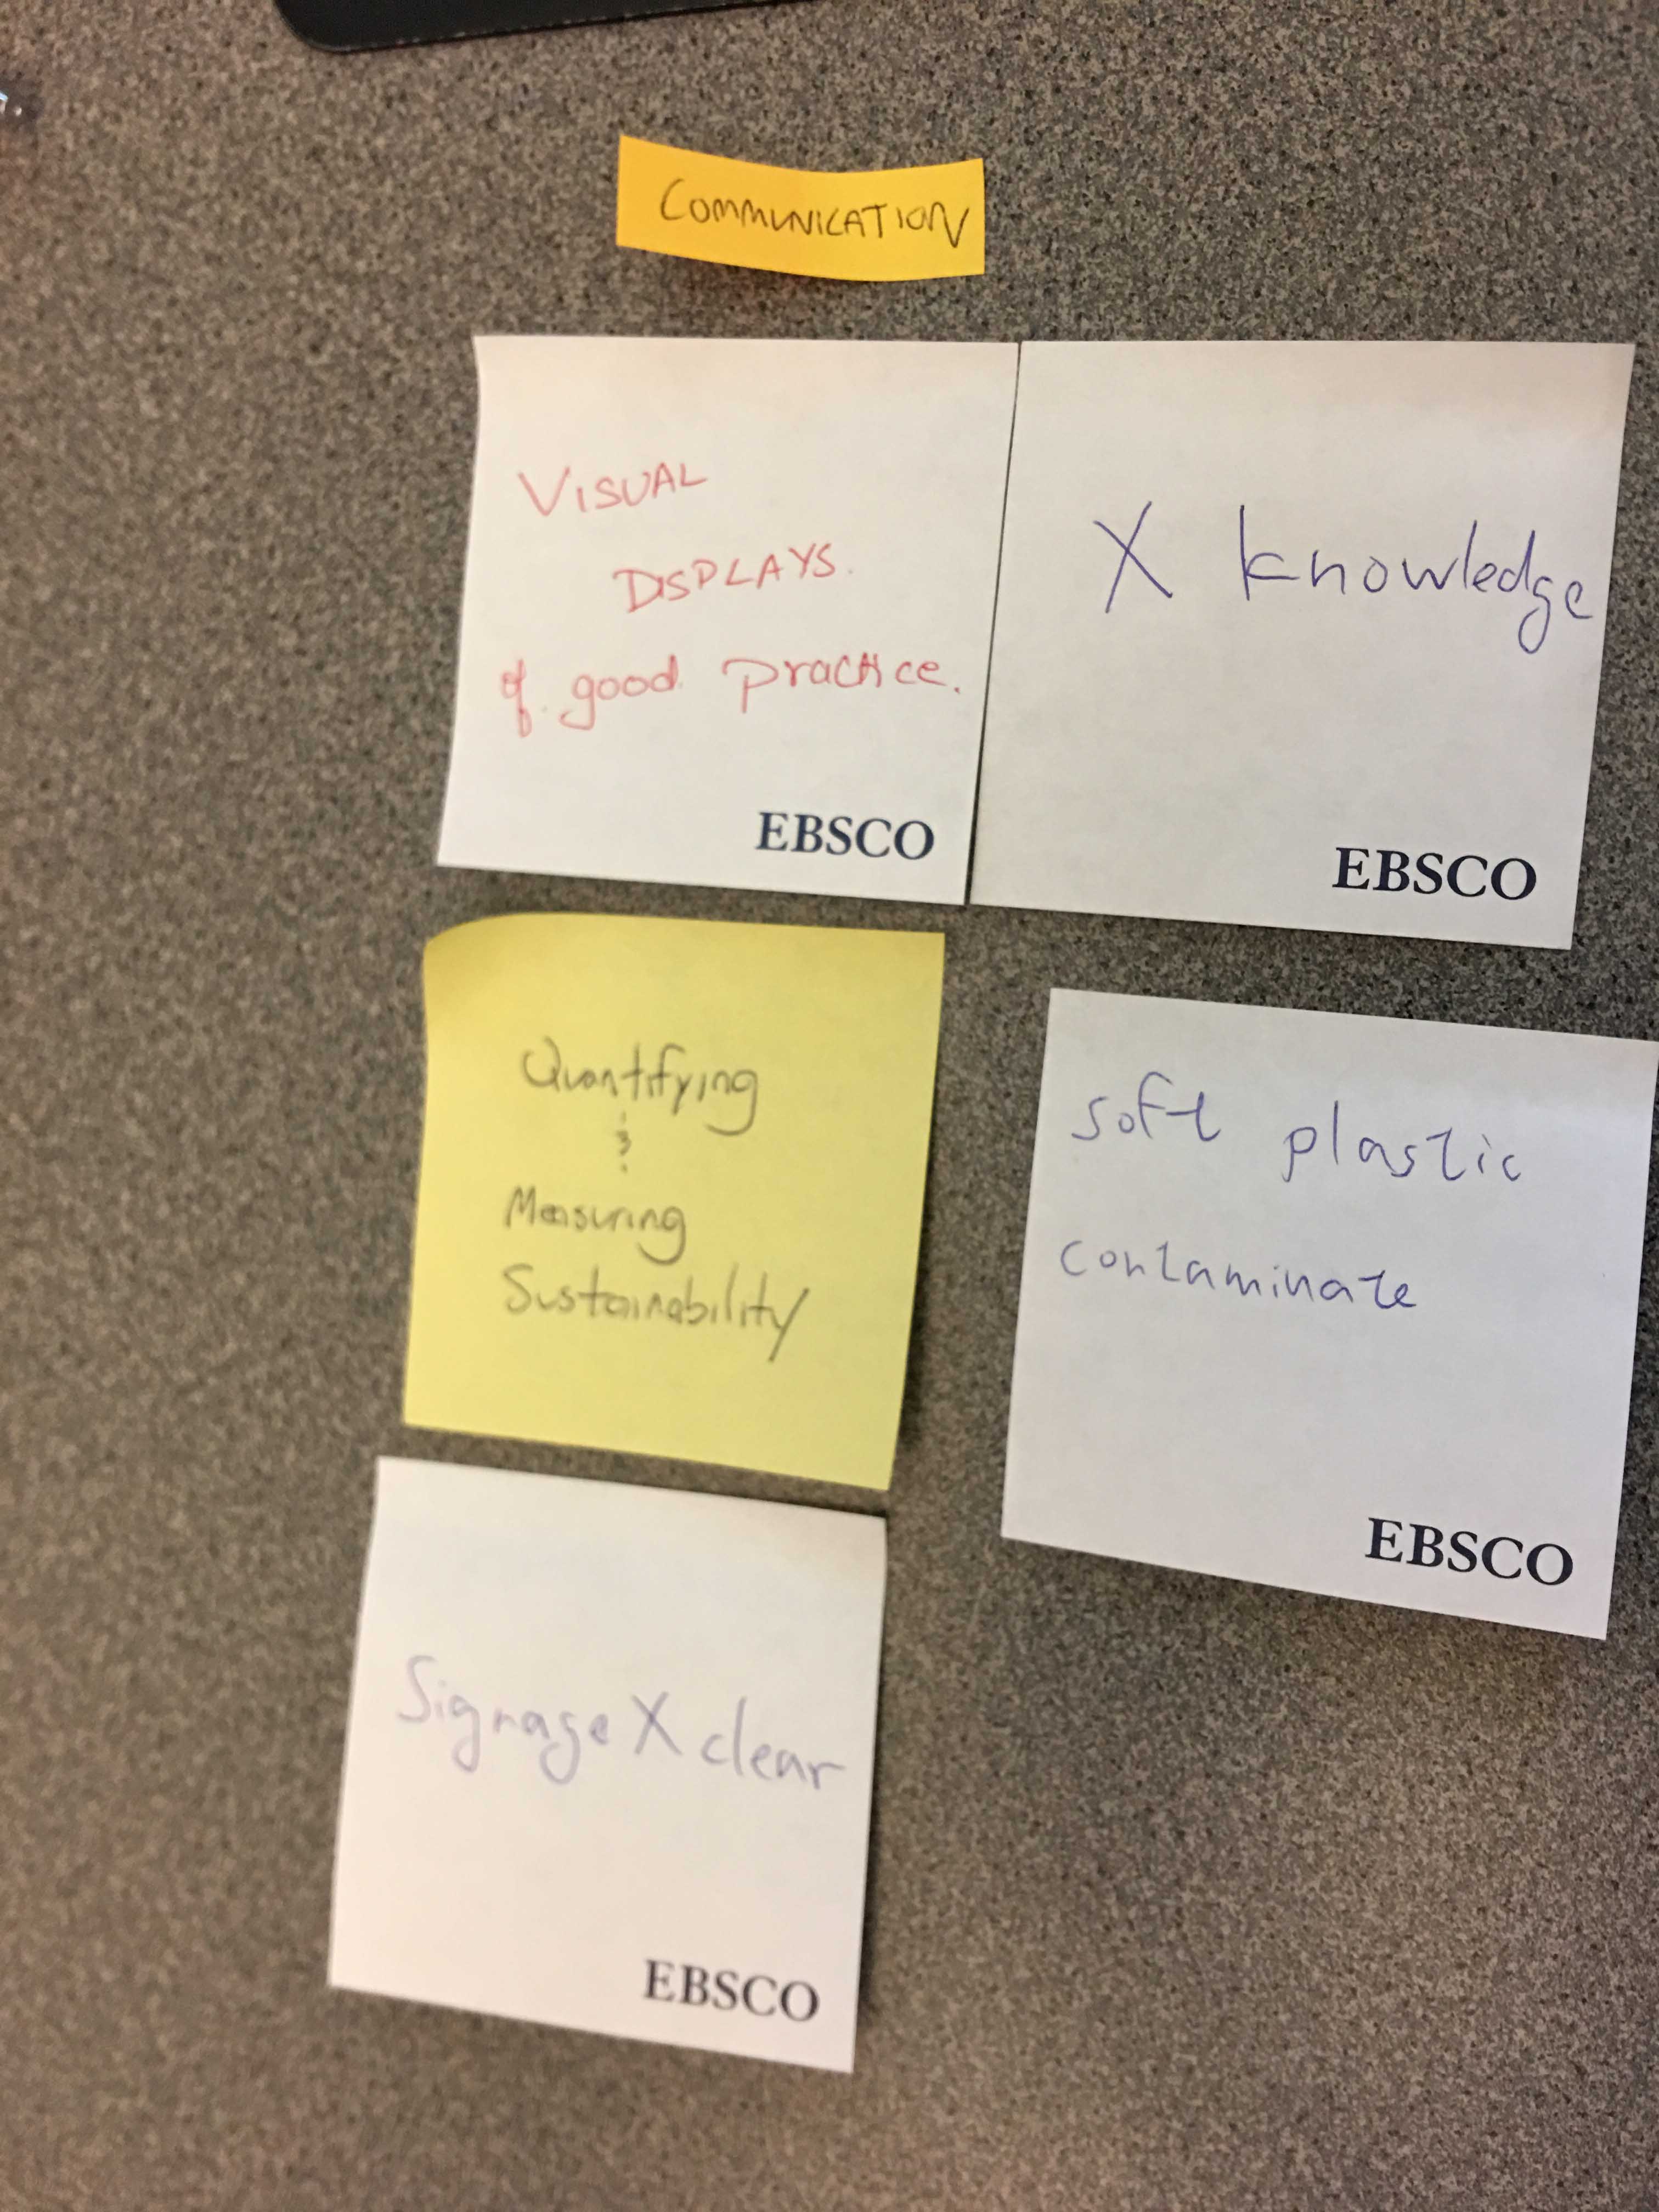 COMMUNICATION
VISUAL
DISPLAYS.
of good practice.
EBSCO
X knowledge
EBSCO
Quantifying
&
Measuring
Sustainability
soft plastic
contaminate
EBSCO
Signage X clear
EBSCO